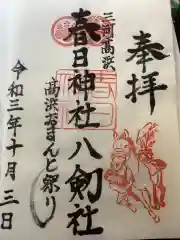 奉拝
三河高浜
春日神社八剱社
高浜おまんと祭り
令和三年十月三日